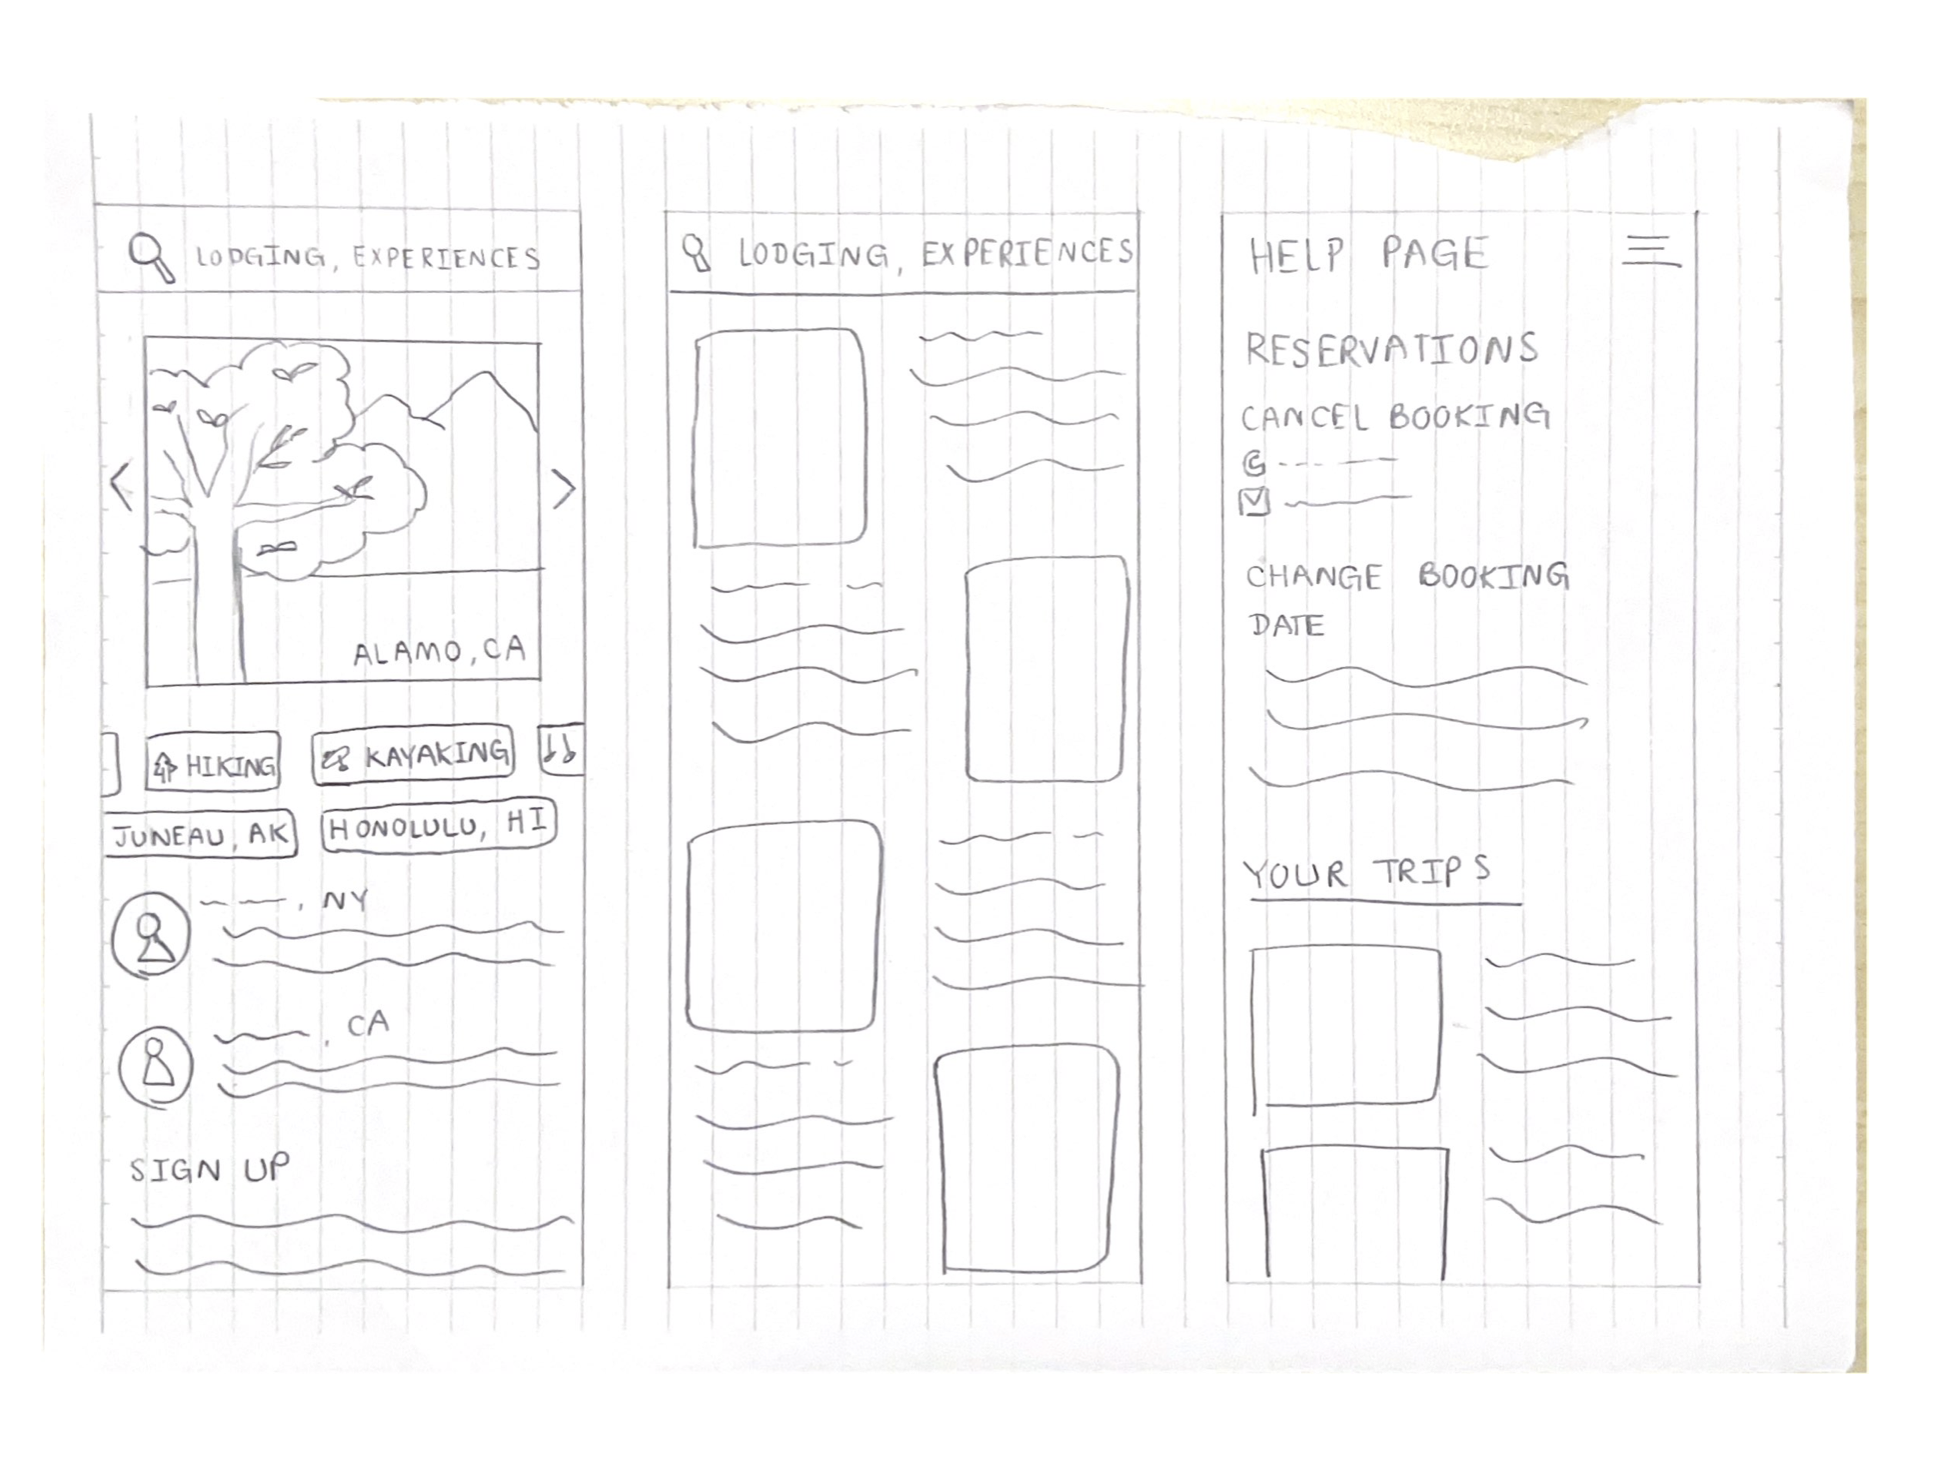 LODGING, EXPERIENCES
ALAMO, CA
HIKING
KAYAKING
JUNEAU, AK
HONOLULU, HI
, NY
, CA
SIGN UP
LODGING, EXPERIENCES
HELP PAGE
RESERVATIONS
CANCEL BOOKING
CHANGE BOOKING
DATE
YOUR TRIPS